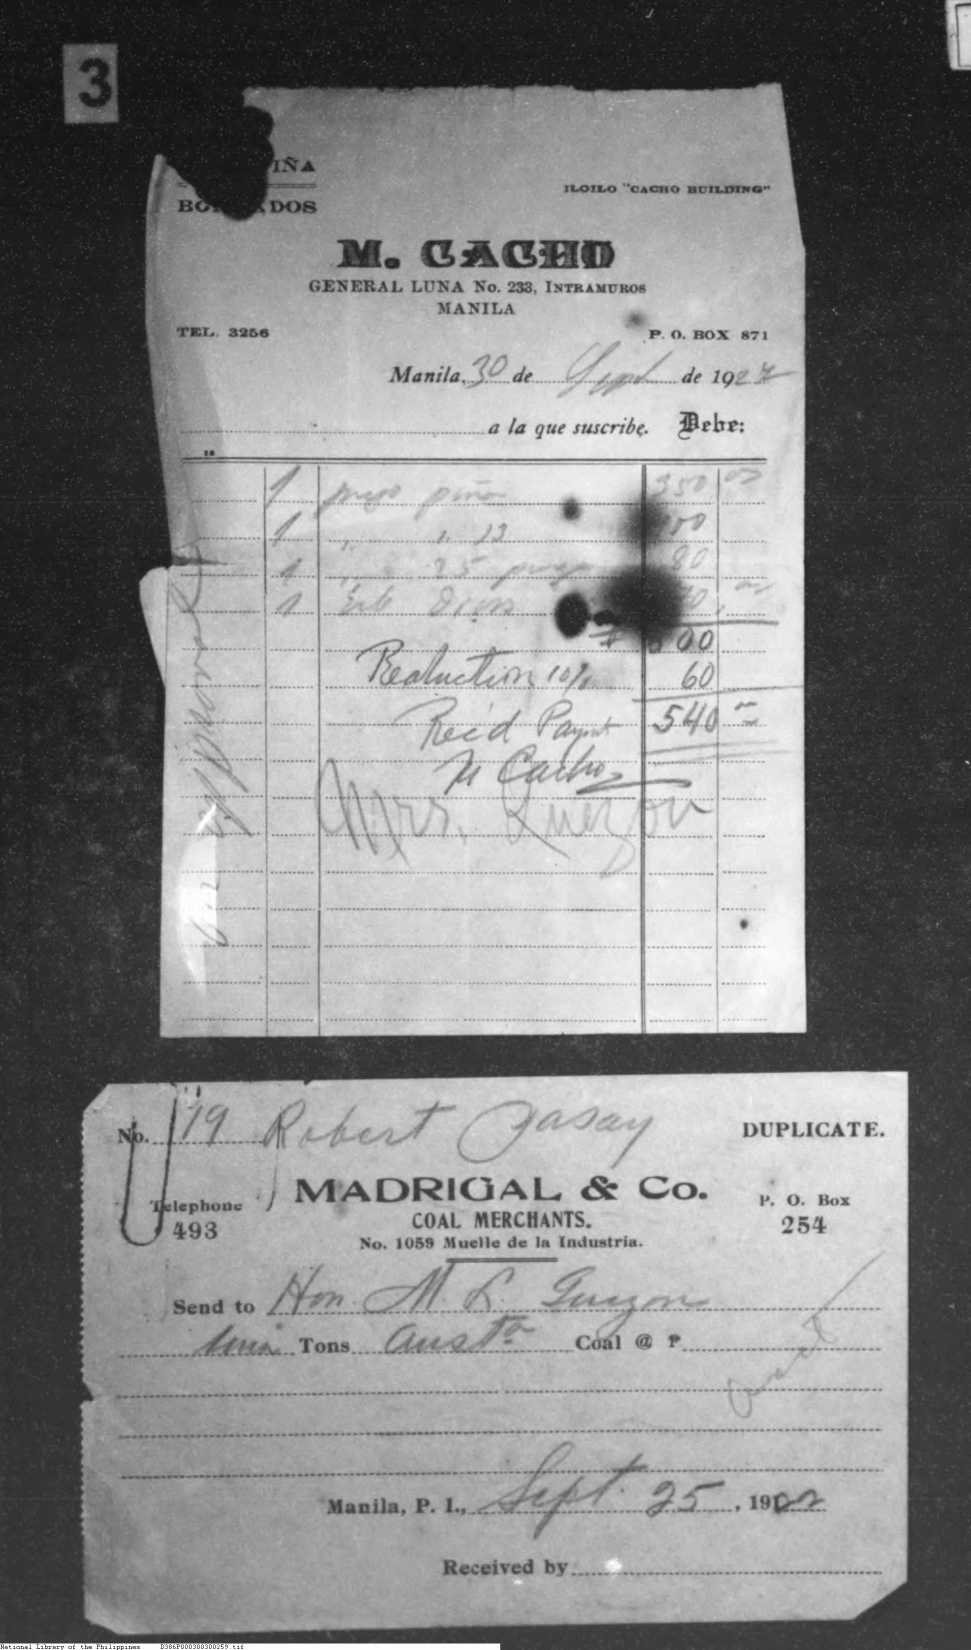 3
IÑA
BO ADOS
ILOILO "CACHO BUILDING"
M. CACHO
GENERAL LUNA No. 233, INTRAMUROS
MANILA
TEL. 3256
P. O. BOX 871
Manila, 30 de Sept de 192
a la que suscribe. Debe:
1 piña 350 00
1 " " 13
1 " 25 80
1
Reduction 10% 60
Rec'd Paymt 540
M Cacho
Mrs. Quezon
No. 119 Robert Yasay
DUPLICATE.
MADRIGAL & Co.
Telephone
493
COAL MERCHANTS.
P. O. Box
254
No. 1059 Muelle de la Industria.
Send to Hon. M. L. Quezon
Tons Aust. Coal @ ₱
Manila, P. I., Sept. 25, 1922
Received by
National Library of the Philippines D386P000300300259.tif